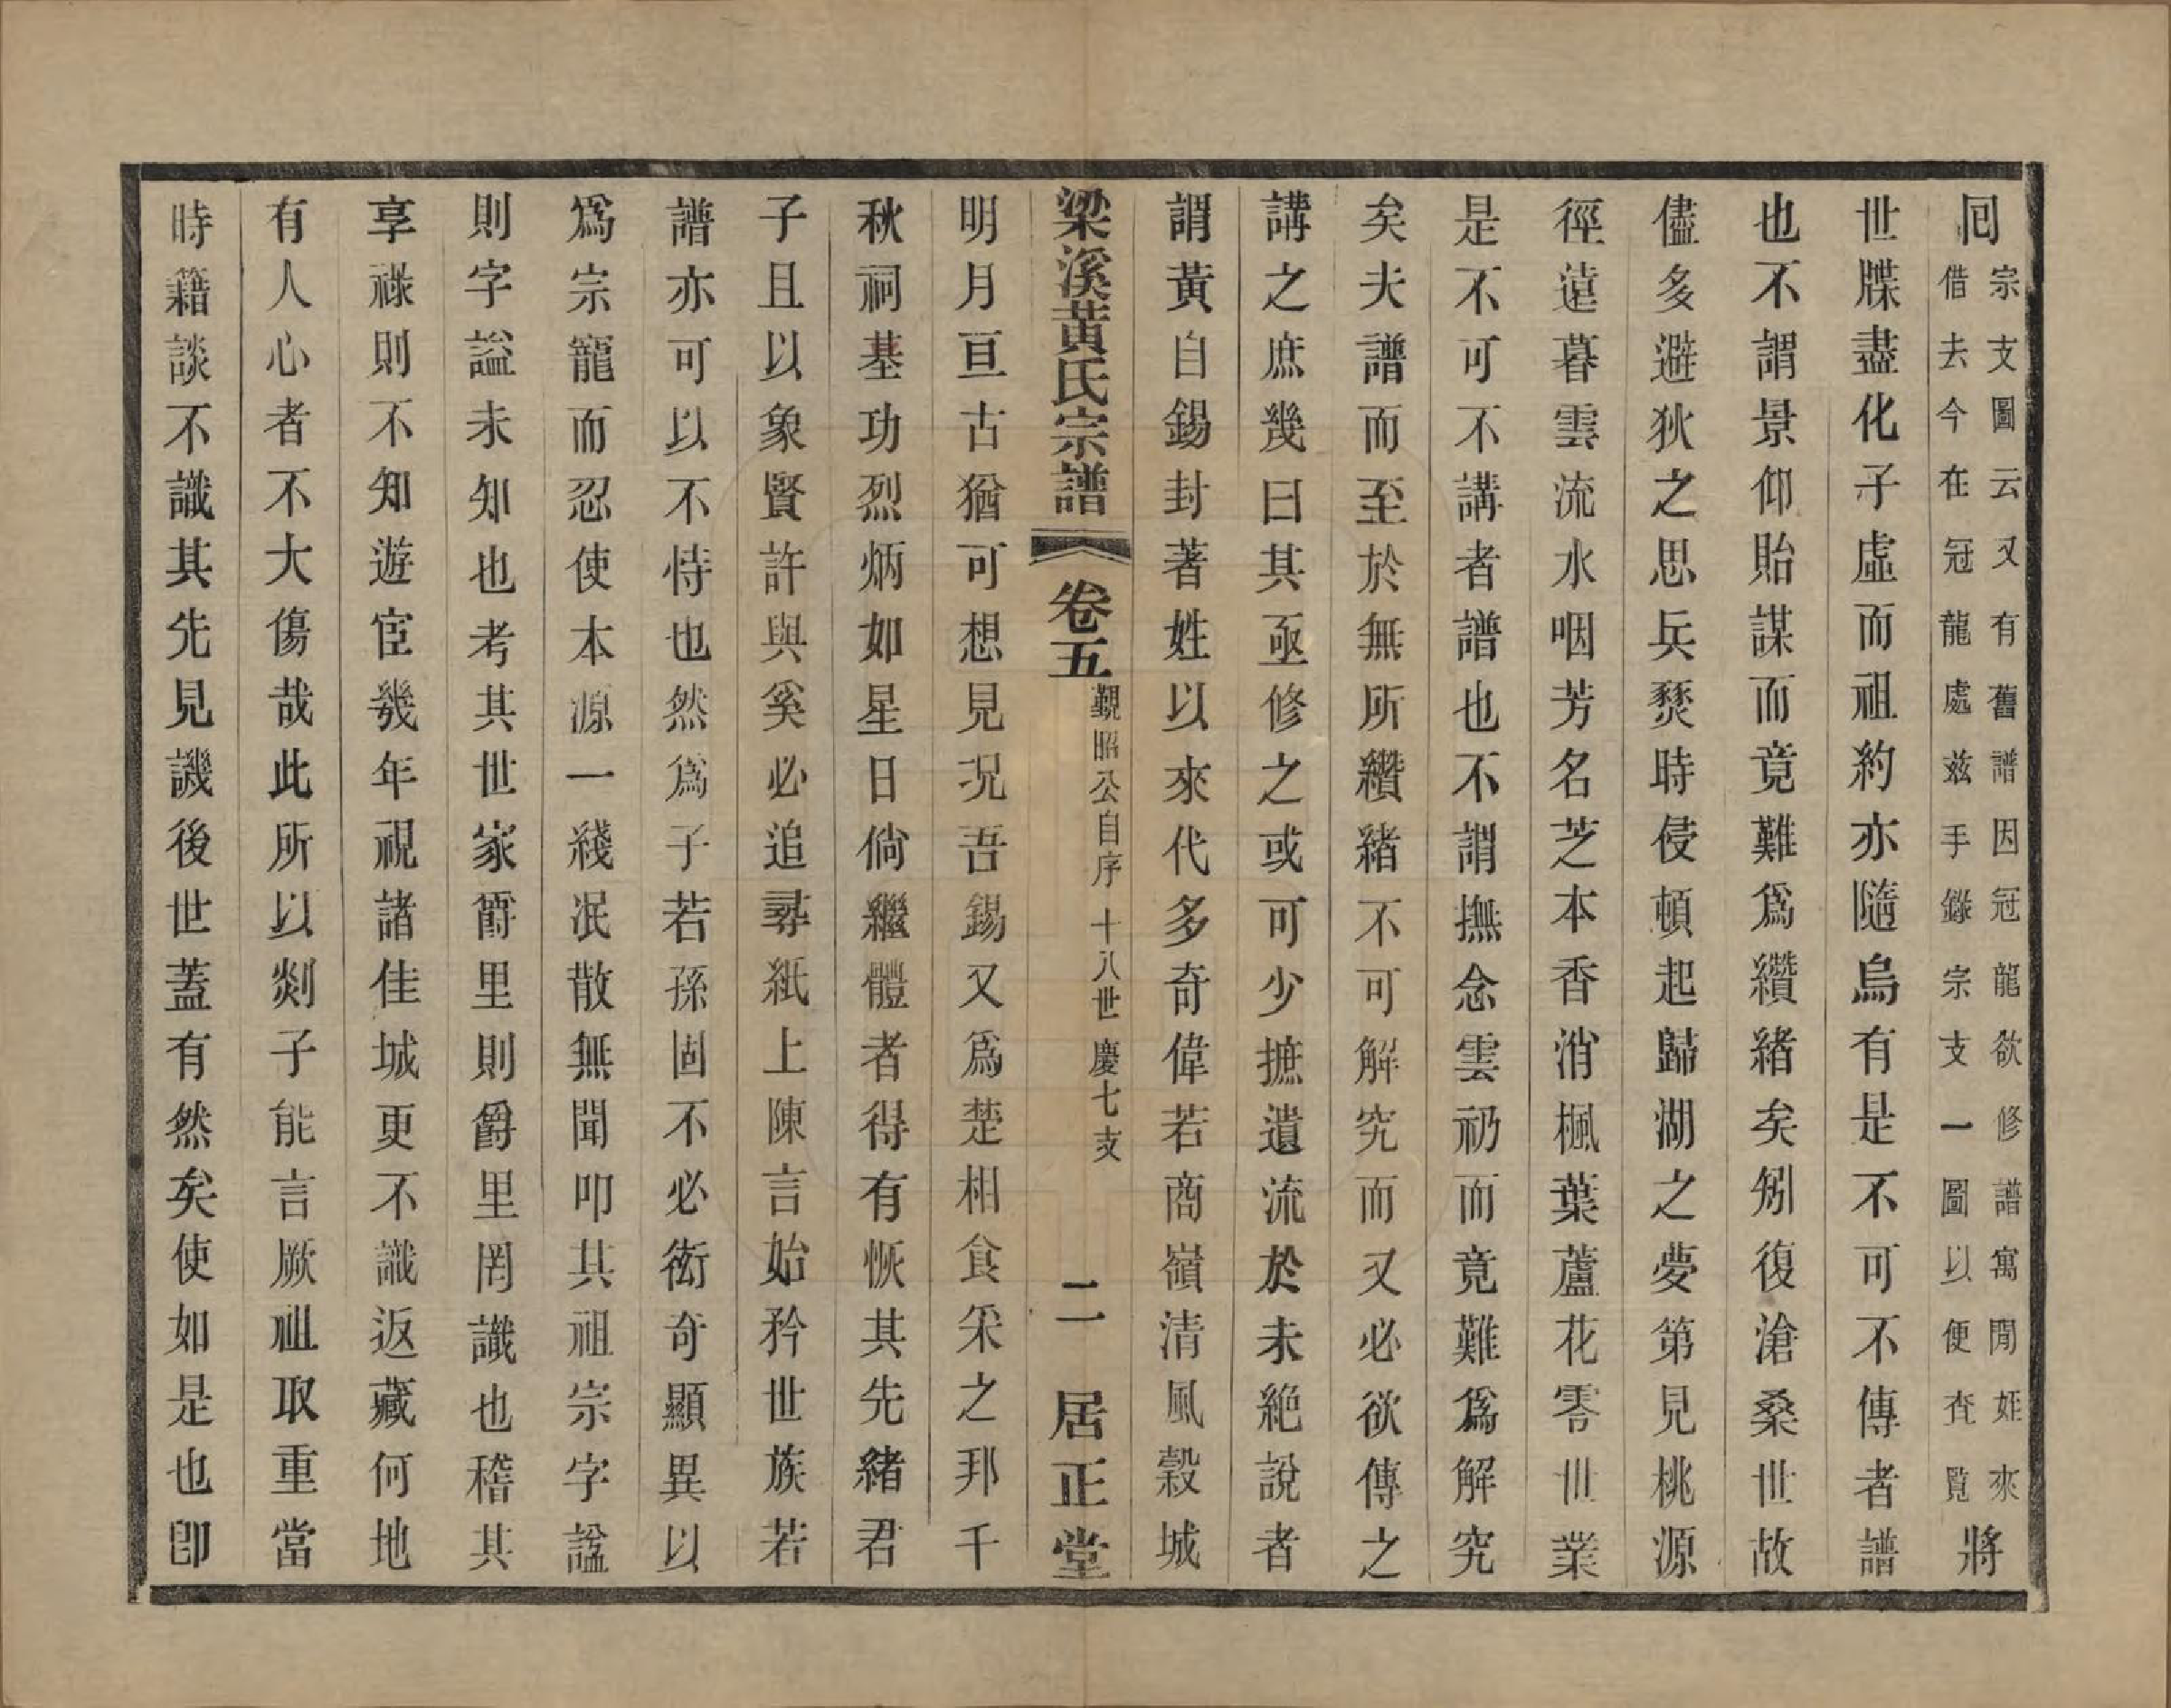 囘宗支圖云又有舊譜因冠龍欲修譜寓閒姪來
借去今在冠龍處兹手錄宗支一圖以便査覧將
世牒盡化子虛而祖約亦隨烏有是不可不傳者譜
也不謂景仰貽謀而竟難爲纘緒矣矧復滄桑世故
儘多避狄之思兵燹時侵頓起歸湖之夢第見桃源
徑遠暮雲流水咽芳名芝本香消楓葉蘆花零世業
是不可不講者譜也不謂撫念雲礽而竟難爲解究
矣夫譜而至於無所纘緒不可解究而又必欲傳之
講之庶幾曰其亟修之或可少摭遺流於未絶說者
謂黃自錫封著姓以來代多奇偉若商嶺清風榖城
梁溪黃氏宗譜 卷五 覲昭公自序 十八世 慶七支 二 居正堂
明月亘古猶可想見況吾錫又爲楚相食采之邦千
秋祠基功烈炳如星日倘繼體者得有恢其先緒君
子且以象賢許與奚必追尋紙上陳言始矜世族若
譜亦可以不恃也然爲子若孫固不必衒奇顯異以
爲宗寵而忍使本源一綫泯散無聞叩其祖宗字諡
則字諡未知也考其世家爵里則爵里罔識也稽其
享祿則不知遊宦幾年視諸佳城更不識返藏何地
有人心者不大傷哉此所以剡子能言厥祖取重當
時籍談不識其先見譏後世蓋有然矣使如是也卽